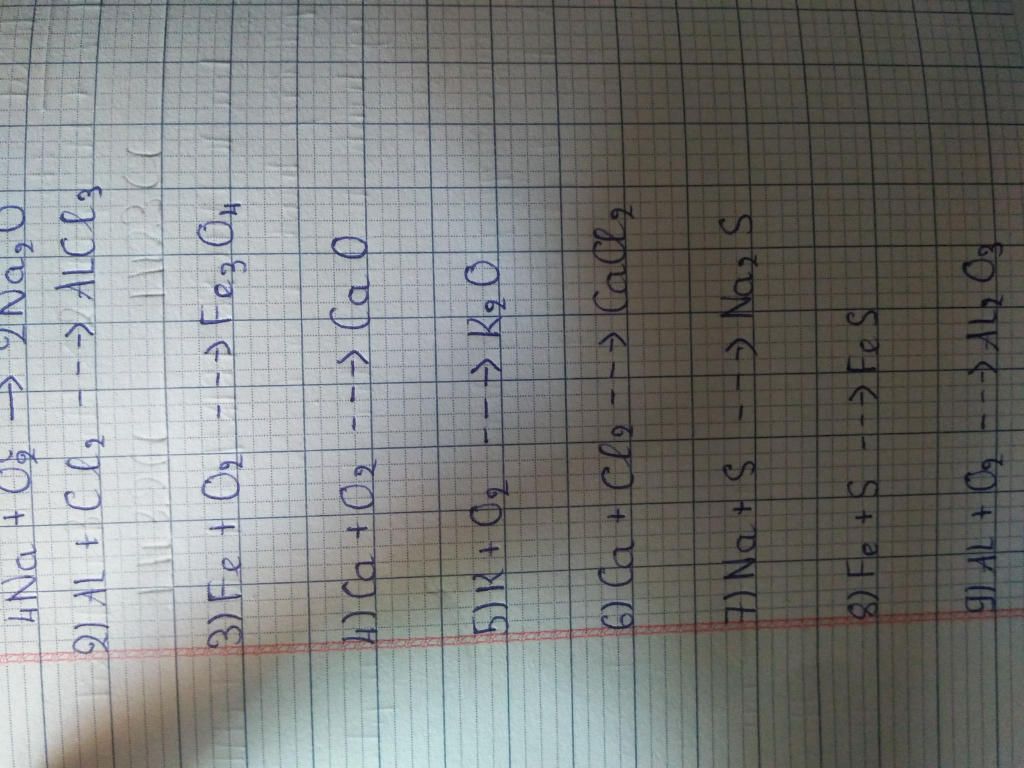 4Na + O₂ → 2Na₂O
2) AL + Cl₂ ---> ALCl₃
3) Fe + O₂ ---> Fe₃O₄
4) Ca + O₂ ---> CaO
5) K + O₂ ---> K₂O
6) Ca + Cl₂ ---> CaCl₂
7) Na + S ---> Na₂S
8) Fe + S ---> FeS
9) AL + O₂ ---> AL₂O₃